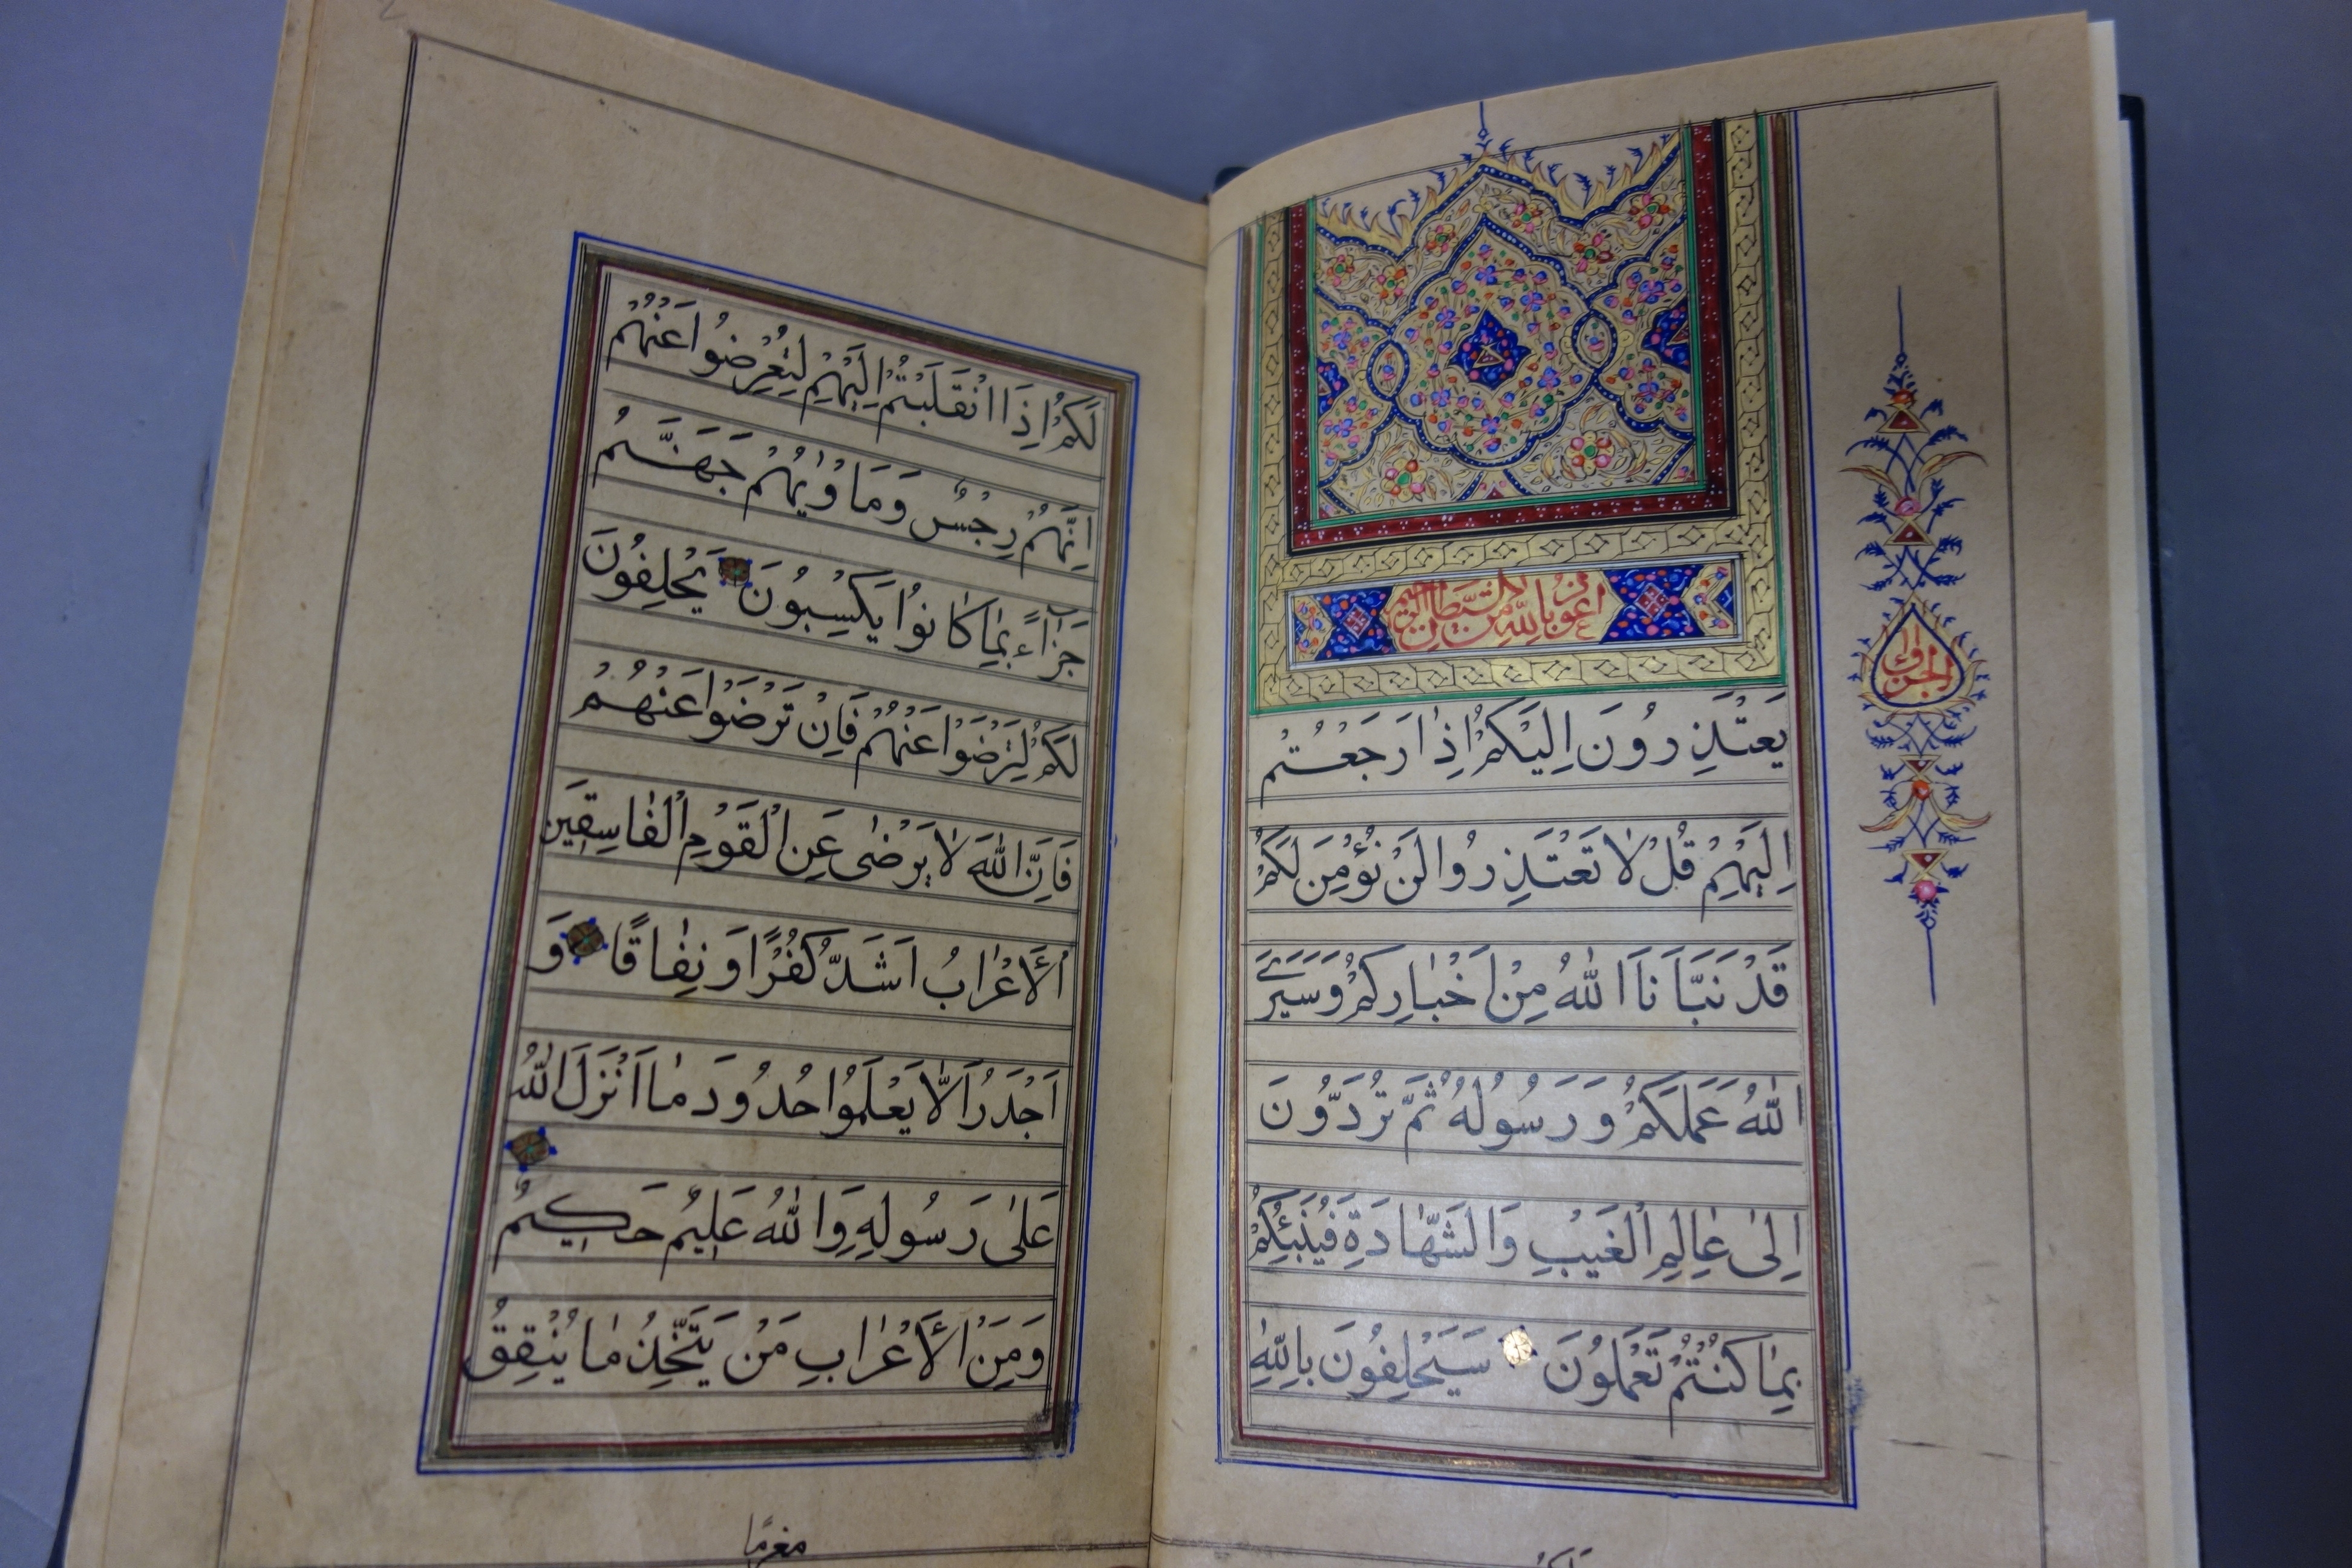 اعوذ بالله من الشیطان الرجیم
یَعْتَذِرُونَ اِلَیْكُمْ اِذٰا رَجَعْتُمْ
اِلَیْهِمْ قُلْ لاٰ تَعْتَذِرُوا لَنْ نُؤْمِنَ لَكُمْ
قَدْ نَبَّاَنَا اللّٰهُ مِنْ اَخْبٰارِكُمْ وَسَیَرَی
اللّٰهُ عَمَلَكُمْ وَرَسُولُهُ ثُمَّ تُرَدُّونَ
اِلیٰ عٰالِمِ الْغَیْبِ وَالشَّهٰادَةِ فَیُنَبِّئُكُمْ
بِمٰا كُنْتُمْ تَعْمَلُونَ سَیَحْلِفُونَ بِاللّٰهِ
لَكُمْ اِذَا انْقَلَبْتُمْ اِلَیْهِمْ لِتُعْرِضُوا عَنْهُمْ
اِنَّهُمْ رِجْسٌ وَمَاْوٰیهُمْ جَهَنَّمُ
جَزٰٓاءً بِمٰا كٰانُوا یَكْسِبُونَ یَحْلِفُونَ
لَكُمْ لِتَرْضَوْا عَنْهُمْ فَاِنْ تَرْضَوْا عَنْهُمْ
فَاِنَّ اللّٰهَ لاٰ یَرْضیٰ عَنِ الْقَوْمِ الْفٰاسِقِینَ
اَلْاَعْرٰابُ اَشَدُّ كُفْرًا وَنِفٰاقًا وَ
اَجْدَرُ اَلاّٰ یَعْلَمُوا حُدُودَ مٰا اَنْزَلَ اللّٰهُ
عَلیٰ رَسُولِهِ وَاللّٰهُ عَلِیمٌ حَكِیمٌ
وَمِنَ الْاَعْرٰابِ مَنْ یَتَّخِذُ مٰا یُنْفِقُ
مغرمًا